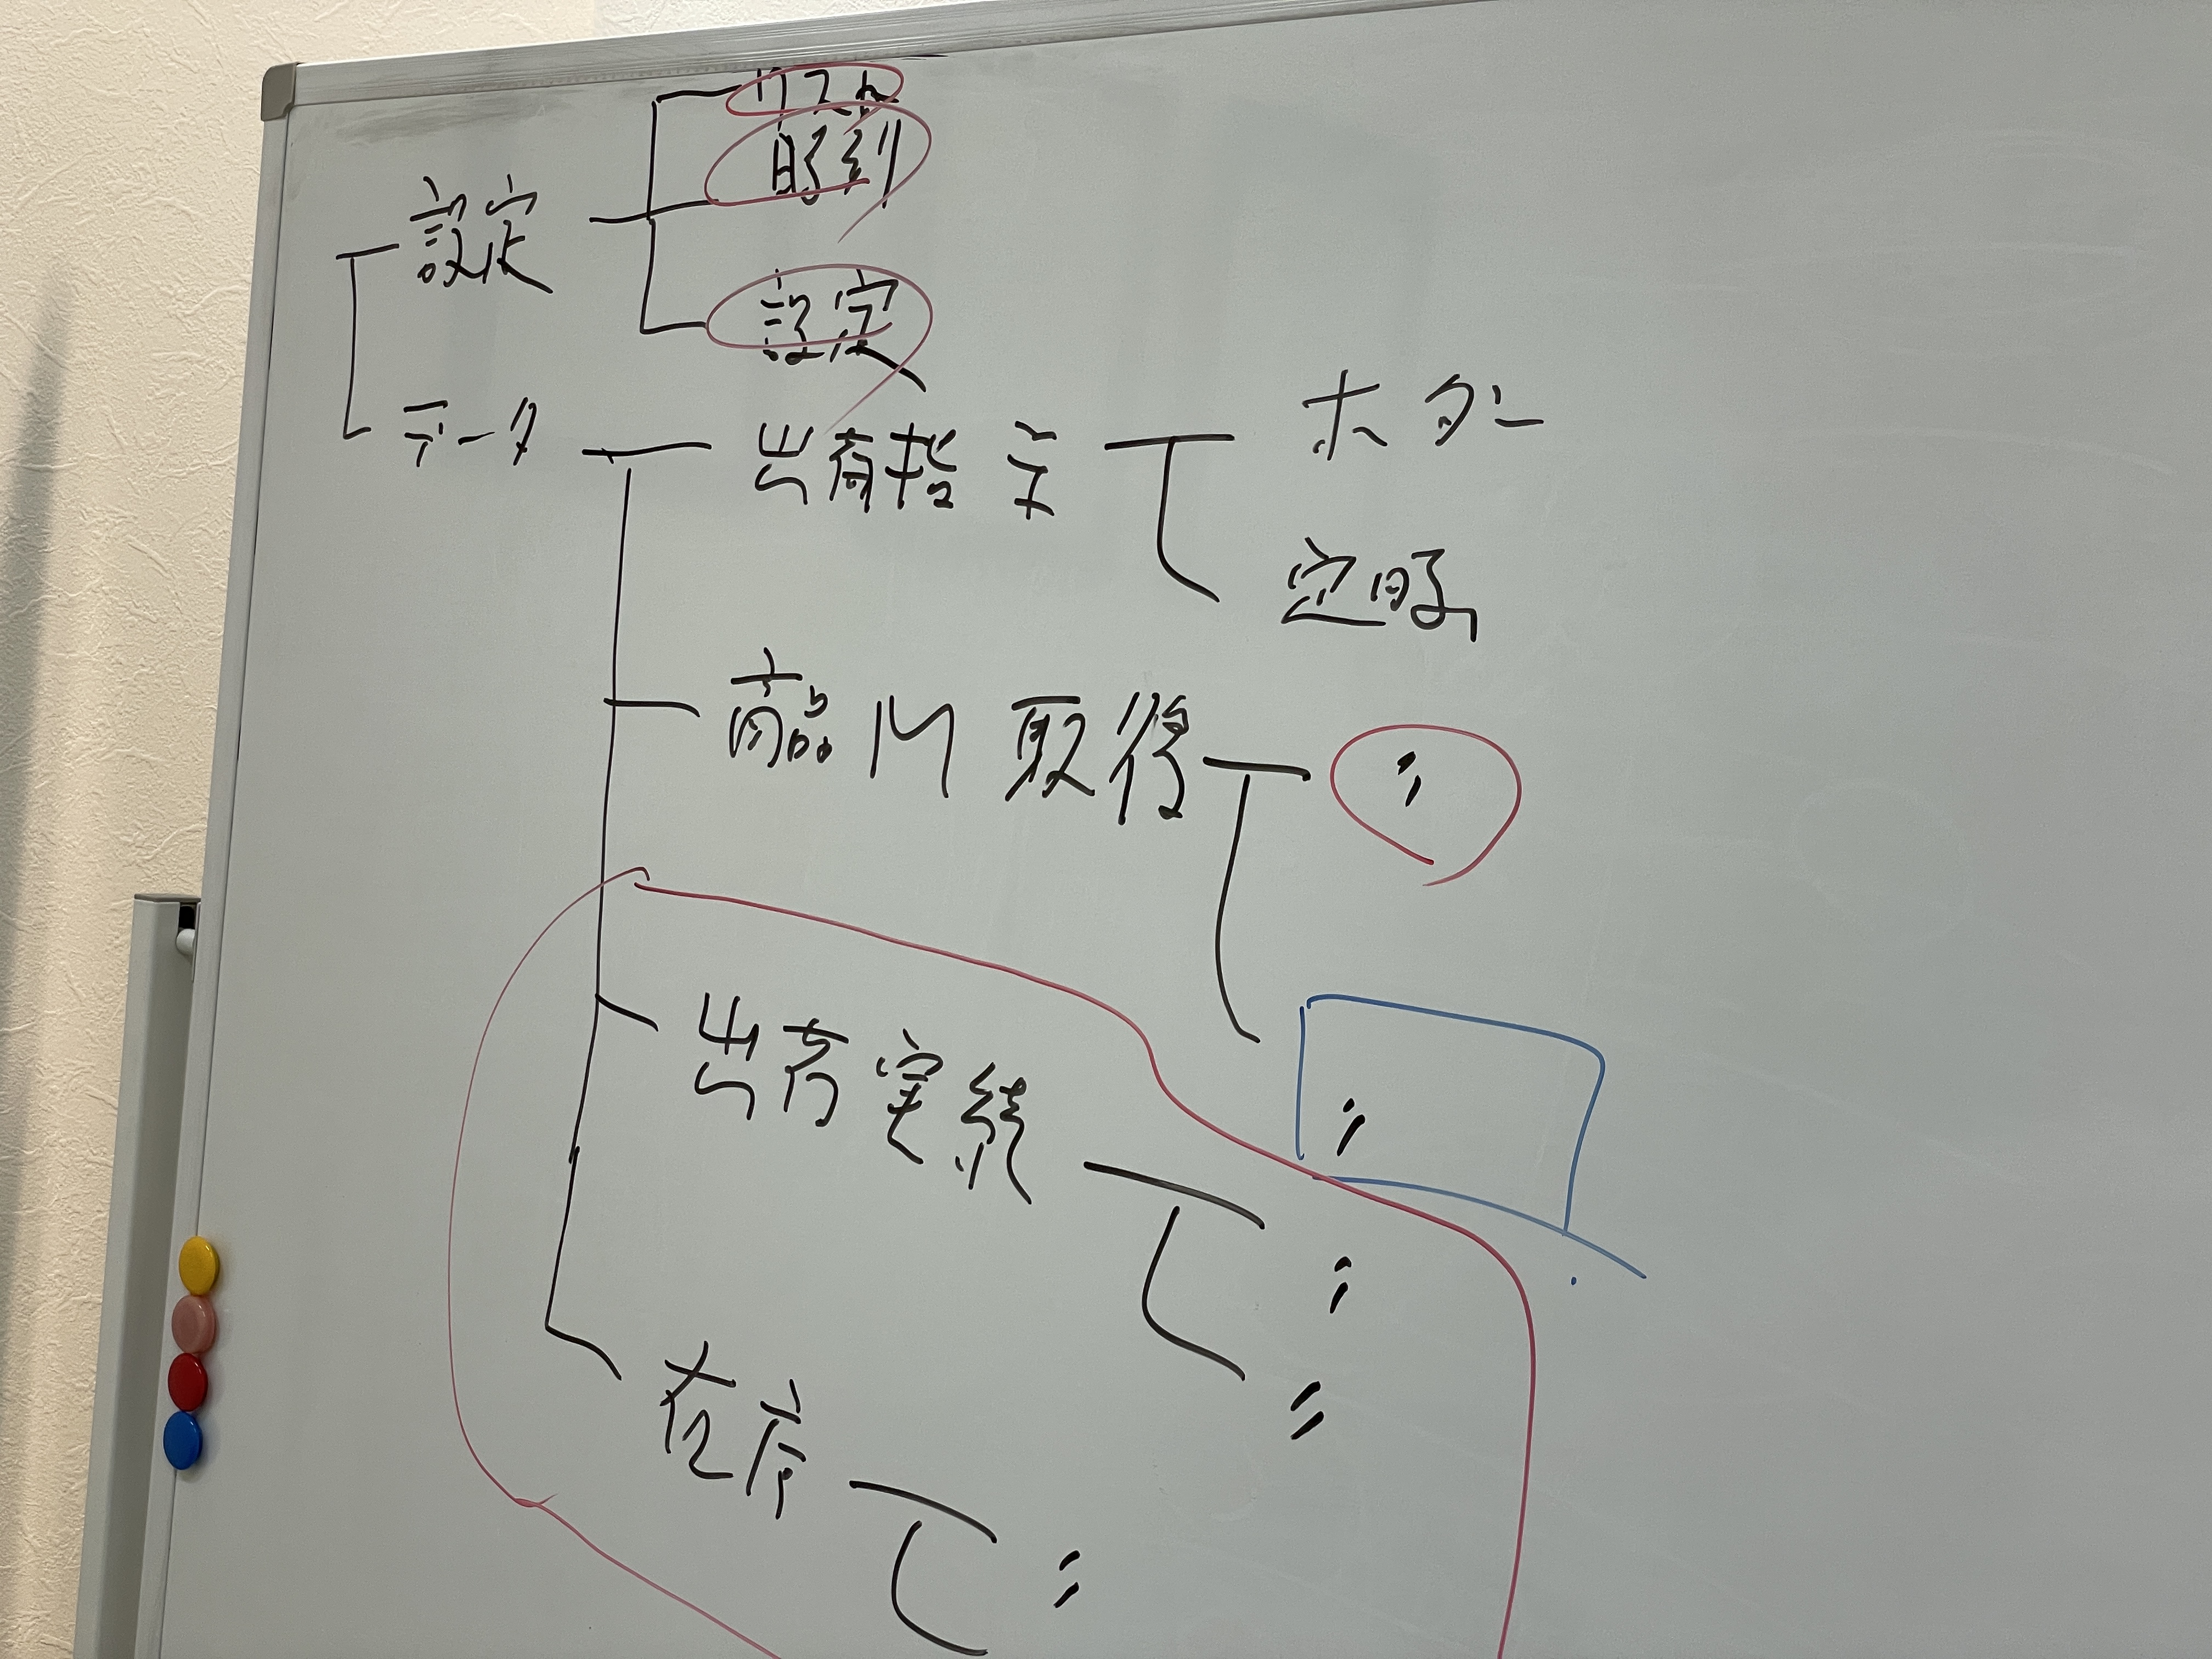 リスト
時刻
設定
設定
データ
出荷指示
ボタン
定時
商品M取得
〃
〃
出荷実績
〃
〃
在庫
〃